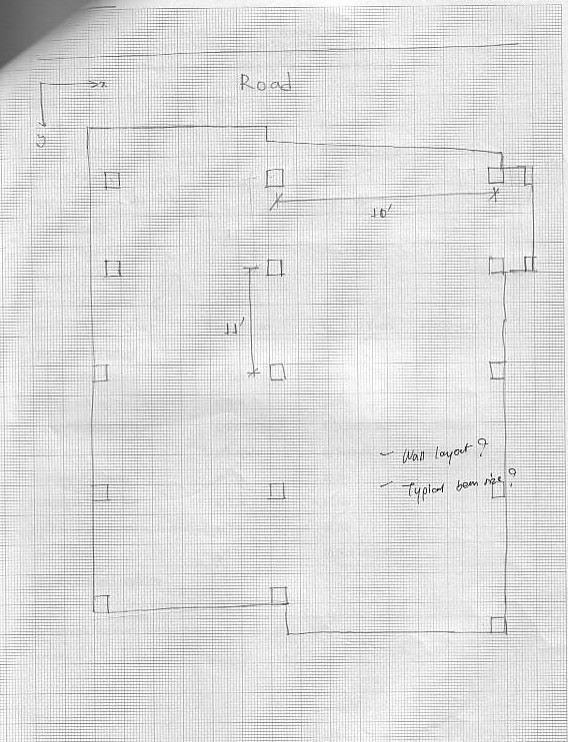 Road
x
y
10'
11'
- Wall layout ?
- Typical beam size ?